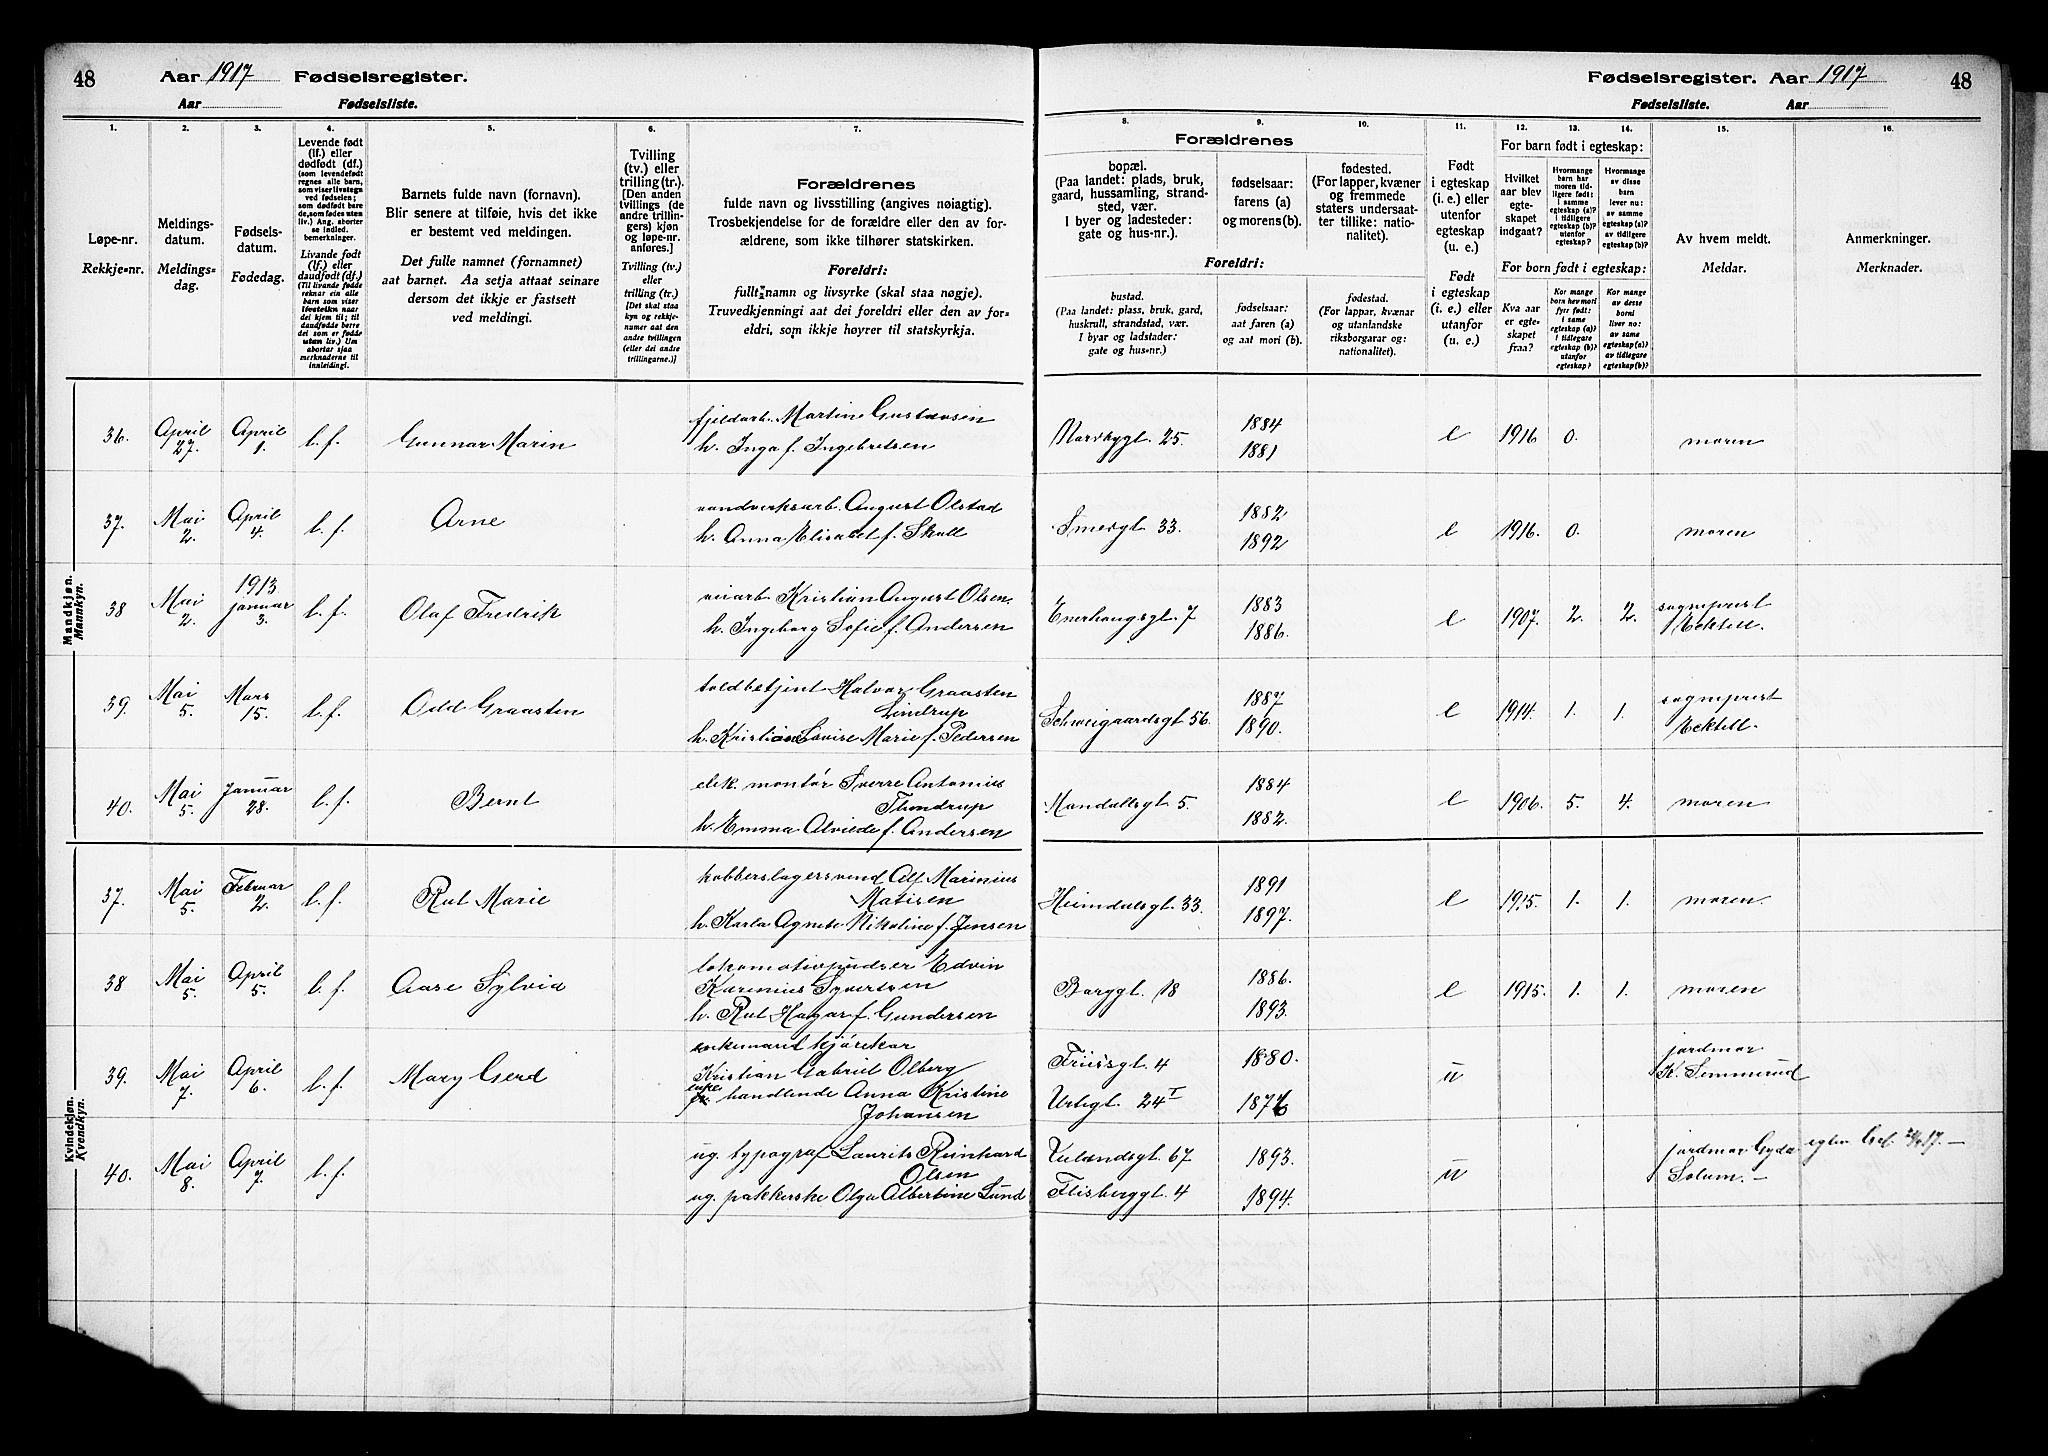 48 Aar 1917 Fødselsregister.
Aar Fødselsliste.
Fødselsregister. Aar 1917 48
Fødselsliste. Aar
1. 2. 3. 4. 5. 6. 7. 8. 9. 10. 11. 12. 13. 14. 15. 16.
Løpe-nr.
Rekkje-nr.
Meldings-
datum.
Meldings-
dag.
Fødsels-
datum.
Fødedag.
Levende født
(lf.) eller
dødfødt (df.)
Livande født
(lf.) eller
daudfødt (df.)
Barnets fulde navn (fornavn).
Blir senere at tilføie, hvis det ikke
er bestemt ved meldingen.
Det fulle namnet (fornamnet)
aat barnet. Aa setja attaat seinare
dersom det ikkje er fastsett
ved meldingi.
Tvilling
(tv.) eller
trilling (tr.).
[Den anden
tvillings (de
andre trillin-
gers) kjøn
og løpe-nr.
anføres.]
Tvilling (tv.)
eller
trilling (tr.)
[Det skal staa
kyn og rekkje-
numer aat den
andre tvillingen
(eller dei andre
trillingarne.)]
Forældrenes
fulde navn og livsstilling (angives nøiagtig).
Trosbekjendelse for de forældre eller den av for-
ældrene, som ikke tilhører statskirken.
Foreldri:
fullt namn og livsyrke (skal staa nøgje).
Truvedkjenningi aat dei foreldri eller den av for-
eldri, som ikkje høyrer til statskyrkja.
Forældrenes
bopæl.
(Paa landet: plads, bruk,
gaard, hussamling, strand-
sted, vær.
I byer og ladesteder:
gate og hus-nr.).
fødselsaar:
farens (a)
og morens (b).
fødested.
(For lapper, kvæner
og fremmede
staters undersaat-
ter tillike: natio-
nalitet).
Foreldri:
bustad.
(Paa landet: plass, bruk, gard,
huskrull, strandstad, vær.
I byar og ladstader:
gate og hus-nr.)
fødselsaar:
aat faren (a)
og aat mori (b).
fødestad.
(For lappar, kvænar
og utanlandske
riksborgarar og:
nationalitet).
Født
i egteskap
(i. e.) eller
utenfor
egteskap
(u. e.)
Født
i egteskap
(i. e.) eller
utanfor
(u. e.)
For barn født i egteskap:
Hvilket
aar blev
egte-
skapet
indgaat?
Hvormange
barn har
moren tid-
ligere født:
i samme
egteskap (a)?
i tidligere
egteskap (b)?
utenfor
egteskap?
Hvormange
av disse
barn
lever nu:
av samme
egteskap (a)?
av tidligere
egteskap (b)?
For born født i egteskap:
Kva aar
er egte-
skapet
fraa?
Kor mange
born hev mori
fyrr født:
i same
egteskap (a)?
i tidlegare
egteskap (b)?
utanfor
egteskap?
Kor mange
av desse
borni
liver no:
av same
egteskap (a)?
av tidlegare
egteskap (b)?
Av hvem meldt.
Meldar.
Anmerkninger.
Merknader.
Mandkjøn.
Mannkyn.
36. April 27. April 1. l.f. Gunnar Marin fjeldarb. Martine Gustavsen
h. Inga f. Ingebretsen
Nordbygt. 25. 1884 1881 e 1916 0. moren
37. Mai 2. April 4. l.f. Arne vandverksarb. August Olstad
h. Anna Elisabet f. Skoll
Smedgt. 33. 1882 1892 e 1916. 0. moren
38 Mai 2. 1913 januar 3. l.f. Olaf Fredrik veiarb. Kristian August Olsen.
h. Ingeborg Sofie f. Andersen
Enerhaugsgt. 7 1883 1886. e 1907. 2. 2. sogneprest
Ecktell.
39. Mai 5. Mars 15. l.f. Odd Graasten toldbetjent Halvor Graasten
Lindrup
h. Kristiane Lovise Marie f. Pedersen
Schweigaardsgt 56. 1887 1890. e 1914. 1. 1. sogneprest
Ecktell.
40. Mai 5. Januar 28. l.f. Bernt elek. montør Sverre Antonius
Flundrup
h. Emma Alvilde f. Andersen
Mandallsgt 5. 1884 1882. e 1906. 5. 4. moren
Kvindekjøn.
Kvendkyn.
37. Mai 5. Februar 2. l.f. Rut Marie kobberslagersvend Alf Marinius
Matisen
h. Karla Agnete Nikoline f. Jensen
Heimdalsgt. 33. 1891 1897. e 1915. 1. 1. moren.
38 Mai 5. April 5. l.f. Aase Sylvia lokomotivpudser Edvin
Karenius Syvertsen
h. Rut Hagar f. Gundersen
Borggt. 18 1886. 1893. e 1915. 1. 1. moren
39. Mai 7. April 6. l.f. Mary Gerd enkemand kjørekar
Kristian Gabriel Olberg
enke handlende Anna Kristine
Johansen
Friisgt. 4 1880.
Urtegt. 24 I 1876 u jordmor
K. Semmerud
40. Mai 8. April 7. l.f. ug. typograf Laurits Reinhard
Olsen
ug. pakkerske Olga Albertine Lund
Vulandsgt. 67 1893.
Flisberggt. 4 1894. u jordmor Gyda
Solum. —